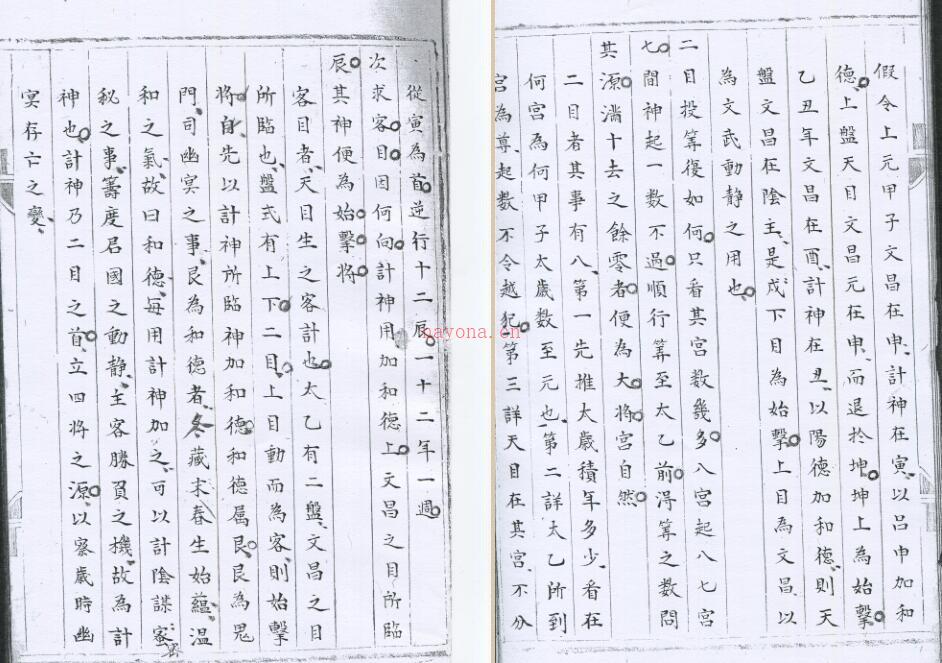 假令上元甲子文昌在申計神在寅以呂申加和
德上盤天目文昌元在申而退於坤坤上為始擊
乙丑年文昌在酉計神在丑以陽德加和德則天
盤文昌在陰主是戌下目為始擊上目為文昌以
為文武動靜之用也
二目投筭復如何只看其宮數幾多八宮起八七宮
七間神起一數不過順行筭至太乙前得筭之數問
其源滿十去之餘零者便為大將宮自然
二目者其事有八第一先推太歲積年多少看在
何宮為何甲子太歲數至元也第二詳太乙所到
宮為尊起數不令越犯第三詳天目在其宮不分
從寅為首逆行十二辰一十二年一週
次求客目因何向計神用加和德上文昌之目所臨
辰其神便為始擊將
客目者天目生之客計也太乙有二盤文昌之目
所臨也盤式有上下二目上目動而為客則始擊
將自先以計神所臨神加和德和德屬艮艮為鬼
門司幽冥之事艮為和德者冬藏末春生始蘊溫
和之氣故曰和德每用計神加之可以計陰謀客
秘之事籌度君國之動靜主客勝負之機故為計
神也計神乃二目之首立四將之源以察歲時幽
冥存亡之變
nayona.cn